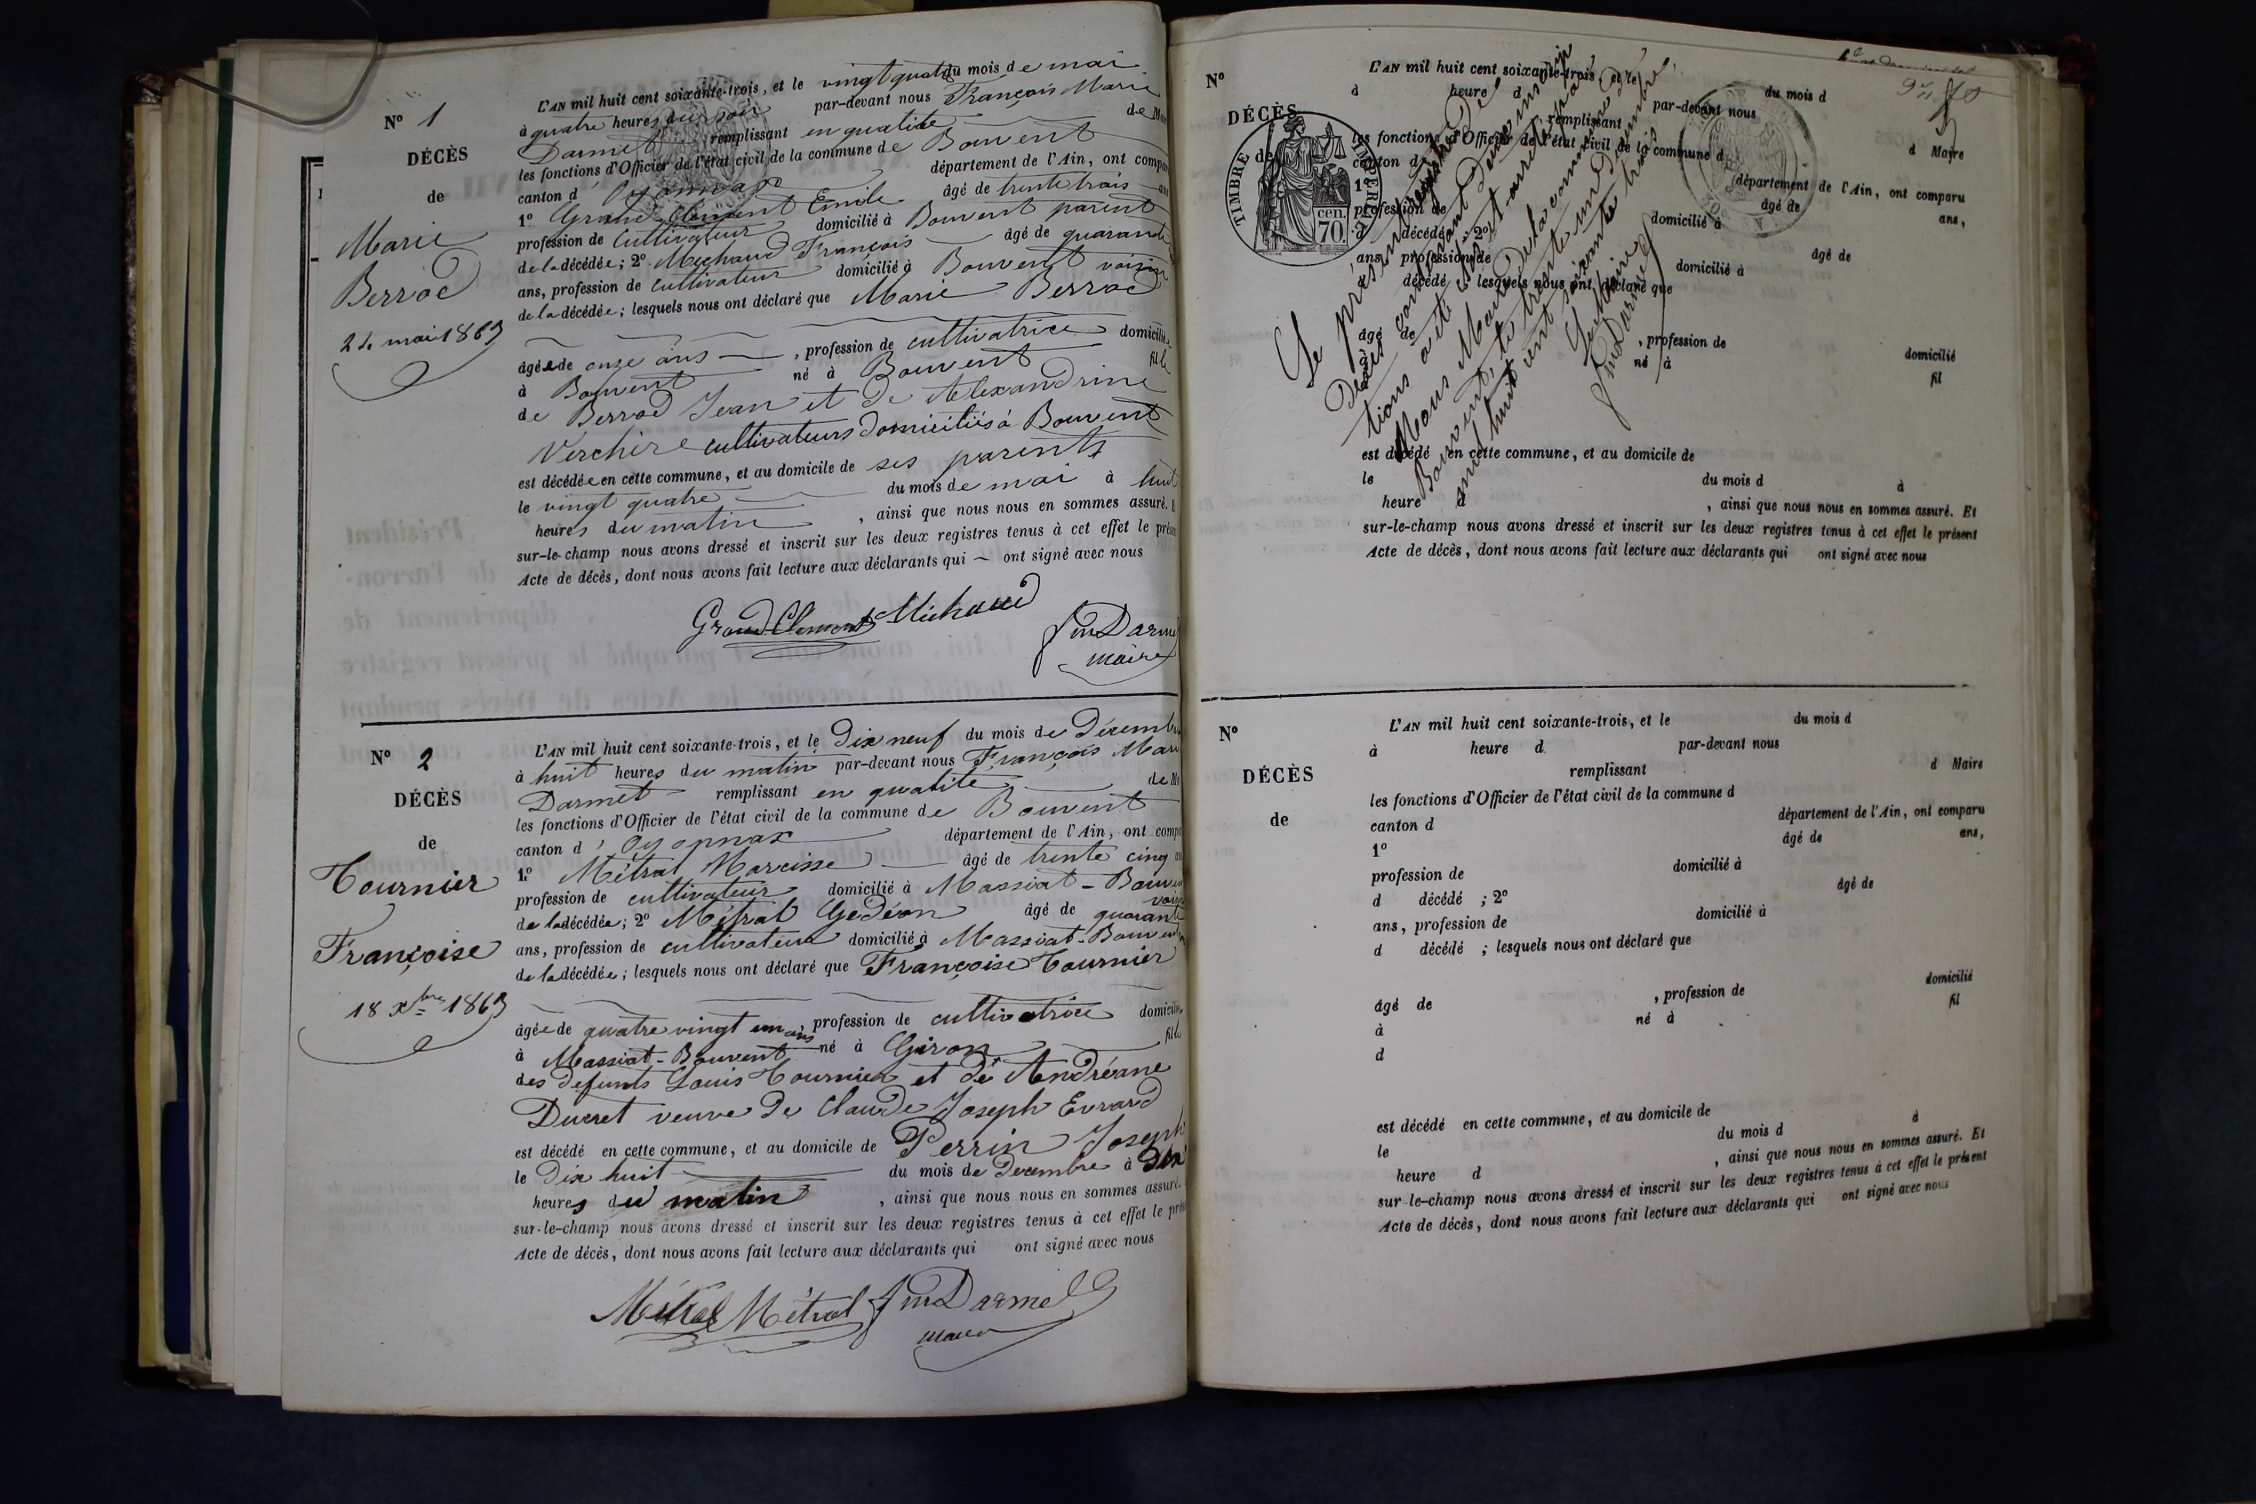 No 1
DÉCÈS
de
Marie
Berrod
24 mai 1863
L'AN mil huit cent soixante-trois, et le vingt quatre du mois de mai
à quatre heures du soir par-devant nous François Marie
Darmet remplissant en qualité de M
les fonctions d'Officier de l'état civil de la commune de Bouvent
canton d' Oyonnax département de l'Ain, ont compa
1º Grand Clément Emile âgé de trente trois
profession de cultivateur domicilié à Bouvent parent
de la décédée; 2º Michaud François âgé de quarante
ans, profession de cultivateur domicilié à Bouvent voisin
de la décédée; lesquels nous ont déclaré que Marie Berrod
âgée de onze ans, profession de cultivatrice domicilié
à Bouvent né à Bouvent fille
de Berrod Jean et de Alexandrine
Verchire cultivateurs domiciliés à Bouvent
est décédée en cette commune, et au domicile de ses parents
le vingt quatre du mois de mai à huit
heures du matin, ainsi que nous nous en sommes assuré.
sur-le-champ nous avons dressé et inscrit sur les deux registres tenus à cet effet le prése
Acte de décès, dont nous avons fait lecture aux déclarants qui ont signé avec nous
Grand Clement Michaud
Darmet
maire
No 2
DÉCÈS
de
Tournier
Françoise
18 Xbre 1863
L'AN mil huit cent soixante-trois, et le Dix neuf du mois de Décembre
à huit heures du matin par-devant nous François Mari
Darmet remplissant en qualité de M
les fonctions d'Officier de l'état civil de la commune de Bouvent
canton d' Oyonnax département de l'Ain, ont compa
1º Métral Narcisse âgé de trente cinq
profession de cultivateur domicilié à Massiat-Bouvent
voisin
de la décédée; 2º Métral Gédéon âgé de quarante
ans, profession de cultivateur domicilié à Massiat-Bouvent
de la décédée; lesquels nous ont déclaré que Françoise Tournier
âgée de quatre vingt un ans, profession de cultivatrice domicilié
à Massiat-Bouvent né à Giron fille
des défunts Louis Tournier et de Andréane
Ducret veuve de Claude Joseph Evrard
est décédé en cette commune, et au domicile de Perrin Joseph
le Dix huit du mois de Decembre à Dix
heures du matin, ainsi que nous nous en sommes assuré.
sur-le-champ nous avons dressé et inscrit sur les deux registres tenus à cet effet le prése
Acte de décès, dont nous avons fait lecture aux déclarants qui ont signé avec nous
Métral Métral Darmet
maire
No
DÉCÈS
de
TIMBRE IMPÉRIAL
70 cen.
L'AN mil huit cent soixante-trois, et le du mois d
à heure d par-devant nous
remplissant d Maire
les fonctions d'Officier de l'état civil de la commune d
canton d département de l'Ain, ont comparu
1º âgé de ans,
profession de domicilié à
d décédé ; 2º âgé de
ans, profession de domicilié à
d décédé ; lesquels nous ont déclaré que
âgé de , profession de domicilié
à né à fil
Le présent registre de
décès contenant deux inscrip
tions a été clos et arrêté par
Nous Maire de la commune de
Bouvent, le trente un décembre
mil huit cent soixante trois
Le Maire
Darmet
est décédé en cette commune, et au domicile de
le du mois d à
heure d , ainsi que nous nous en sommes assuré. Et
sur-le-champ nous avons dressé et inscrit sur les deux registres tenus à cet effet le présent
Acte de décès, dont nous avons fait lecture aux déclarants qui ont signé avec nous
No
DÉCÈS
de
L'AN mil huit cent soixante-trois, et le du mois d
à heure d par-devant nous
remplissant d Maire
les fonctions d'Officier de l'état civil de la commune d
canton d département de l'Ain, ont comparu
1º âgé de ans,
profession de domicilié à
d décédé ; 2º âgé de
ans, profession de domicilié à
d décédé ; lesquels nous ont déclaré que
âgé de , profession de domicilié
à né à fil
d
est décédé en cette commune, et au domicile de
le du mois d à
heure d , ainsi que nous nous en sommes assuré. Et
sur-le-champ nous avons dressé et inscrit sur les deux registres tenus à cet effet le présent
Acte de décès, dont nous avons fait lecture aux déclarants qui ont signé avec nous